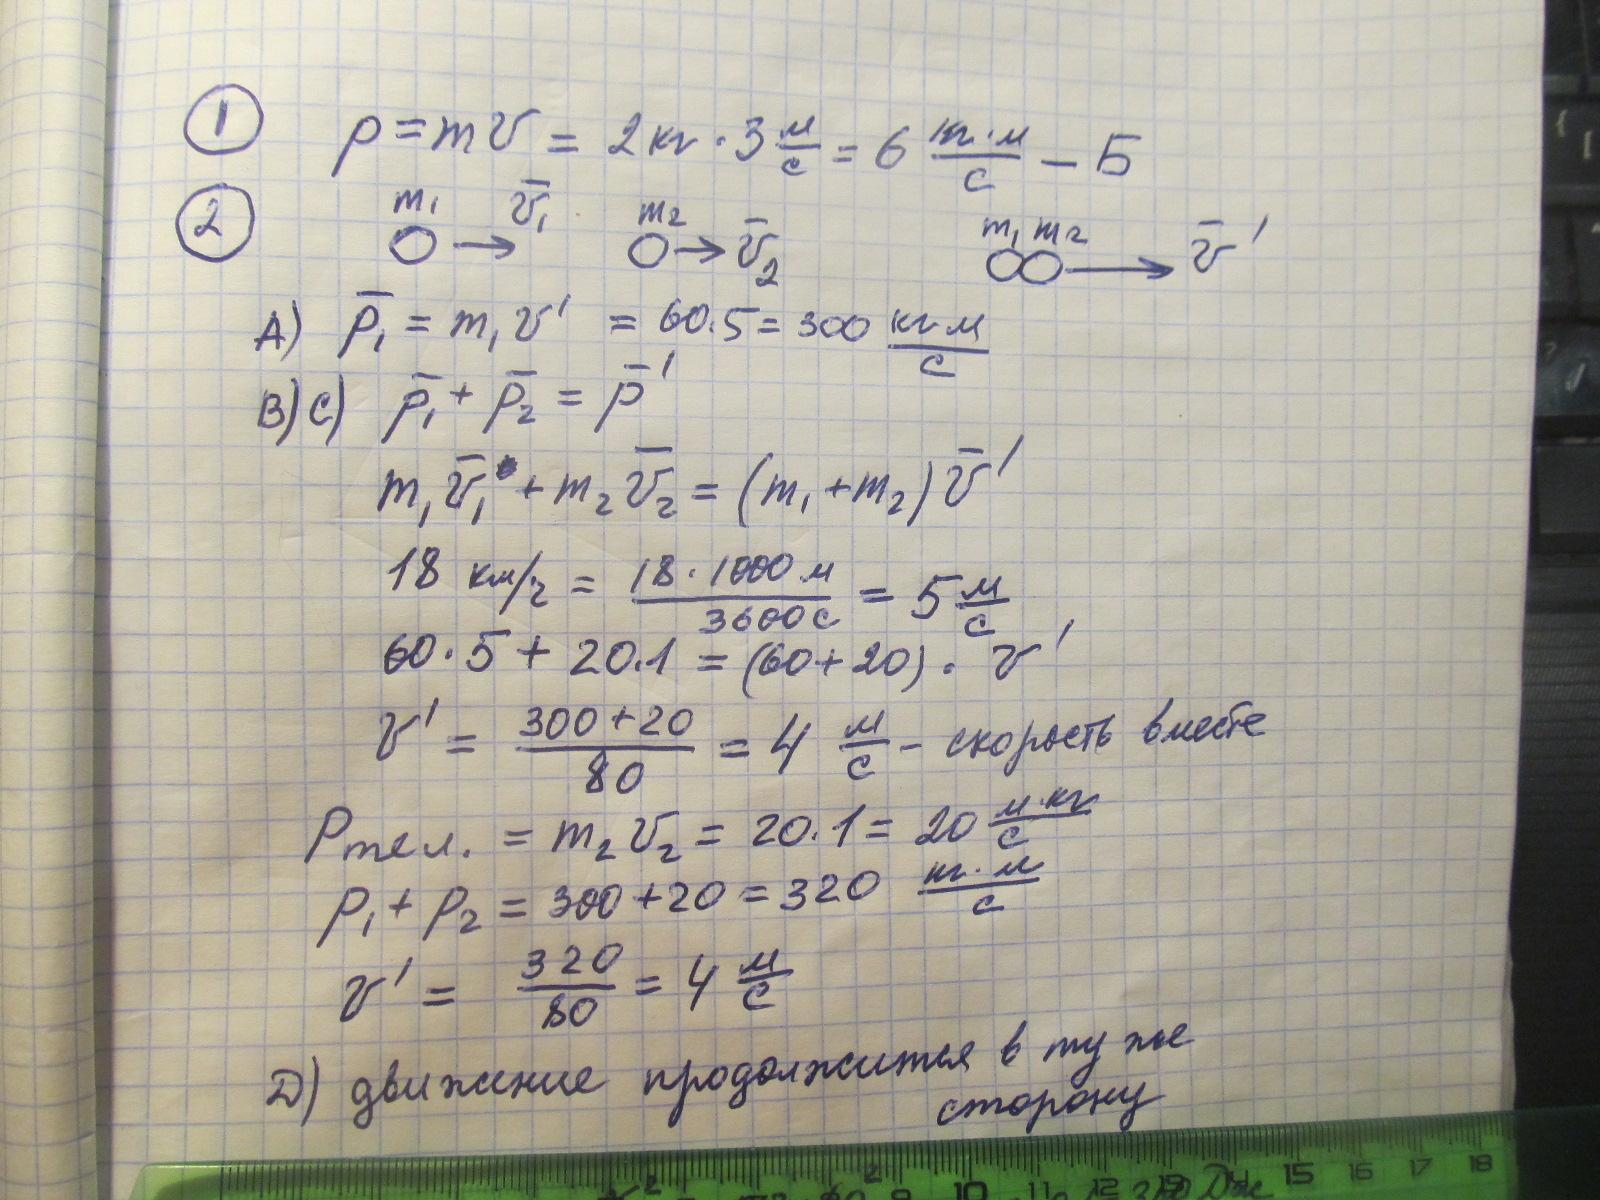 1 p = mv = 2 кг · 3 м/с = 6 кг·м/с – Б
2 m₁ v̄₁ m₂ v̄₂ m₁ m₂ v̄'
A) p̄₁ = m₁v' = 60·5 = 300 кг·м/с
B) C) p̄₁ + p̄₂ = p̄'
m₁v̄₁ + m₂v̄₂ = (m₁ + m₂) v̄'
18 км/ч = 18·1000 м / 3600 с = 5 м/с
60·5 + 20·1 = (60 + 20) · v'
v' = 300 + 20 / 80 = 4 м/с – скорость вместе
Pтел. = m₂v₂ = 20·1 = 20 м·кг/с
p₁ + p₂ = 300 + 20 = 320 кг·м/с
v' = 320/80 = 4 м/с
D) движение продолжится в ту же
сторону
10 11 12 13 15 16 17 18